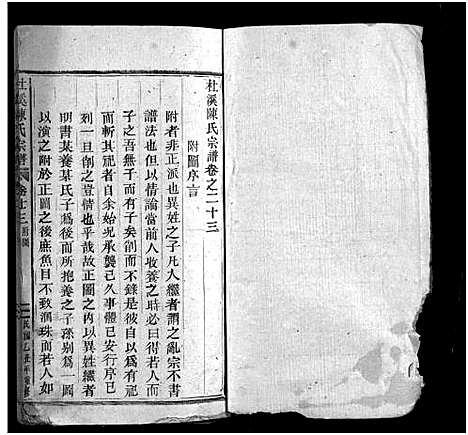 杜溪陳氏宗譜卷之二十三
附圖序言
附者非正派也異姓之子凡人繼者謂之亂宗不書
譜法也但以情論當前人收養之時必曰得若人而
子之吾無子而有子矣削而不錄是彼自以為有祀
而斬其祀者自余始況承襲已久事體已安行序已
列一旦削之豈情也乎哉故正圖之內以異姓繼者
明書某養某氏子為後而所抱養之子孫別為一圖
以演之附於正圖之後庶魚目不致溷珠而若人如
杜溪陳氏宗譜 卷廿三 附圖
民國乙丑年重修